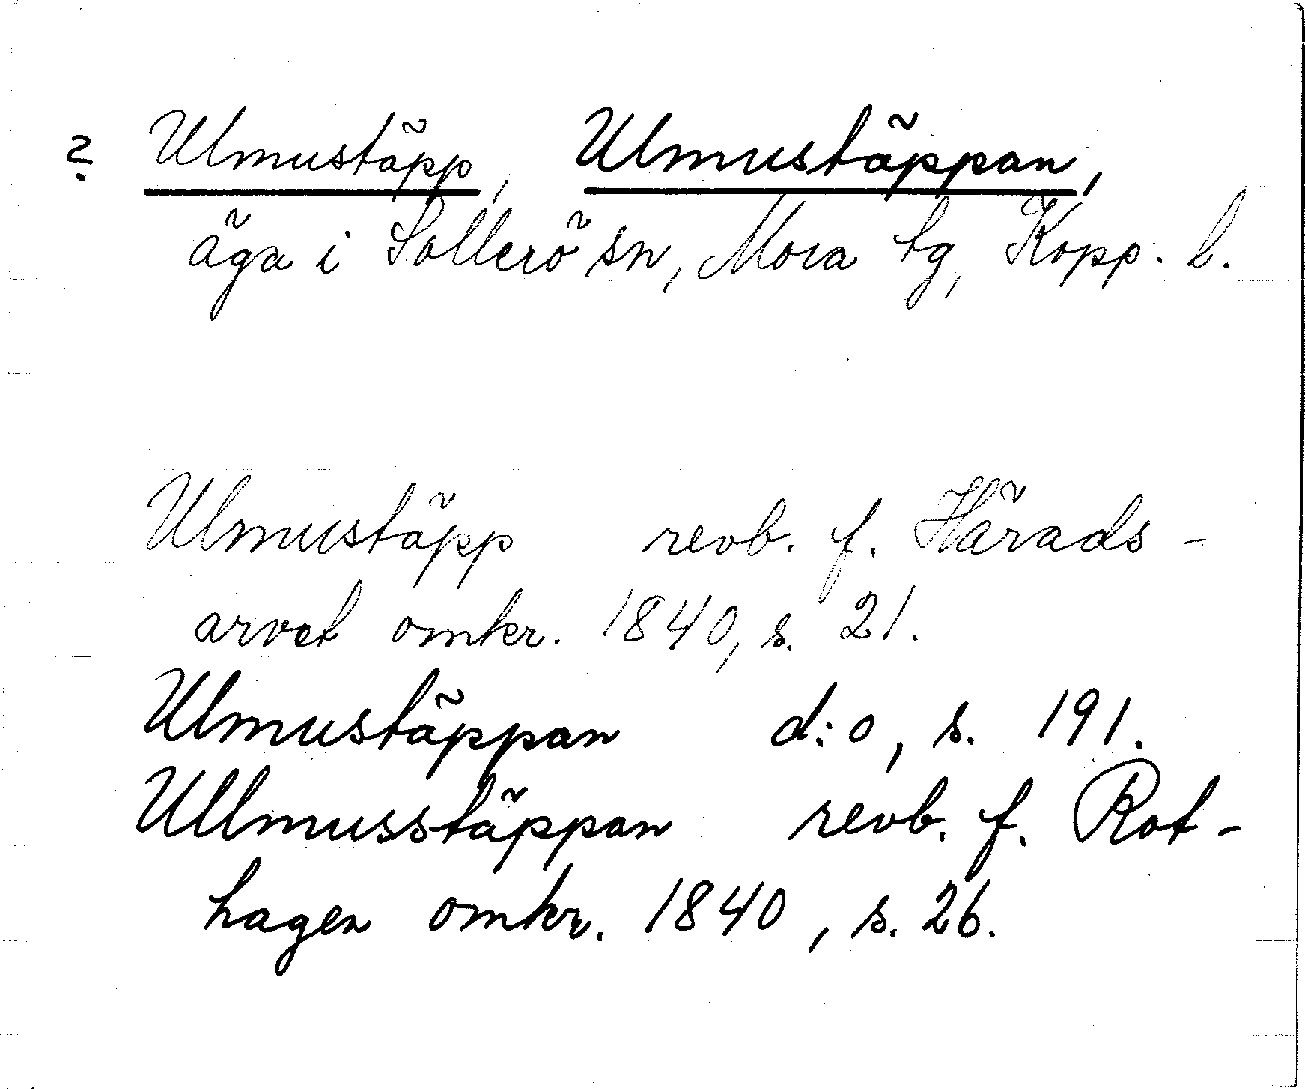 ? Ulmustäpp, Ulmustäppan,
äga i Sollerö sn, Mora tg, Kopp. l.
Ulmustäpp revb. f. Härads-
arvet omkr. 1840, s. 21.
Ulmustäppan d:o, s. 191.
Ullmusstäppan revb. f. Rot-
hagen omkr. 1840, s. 26.